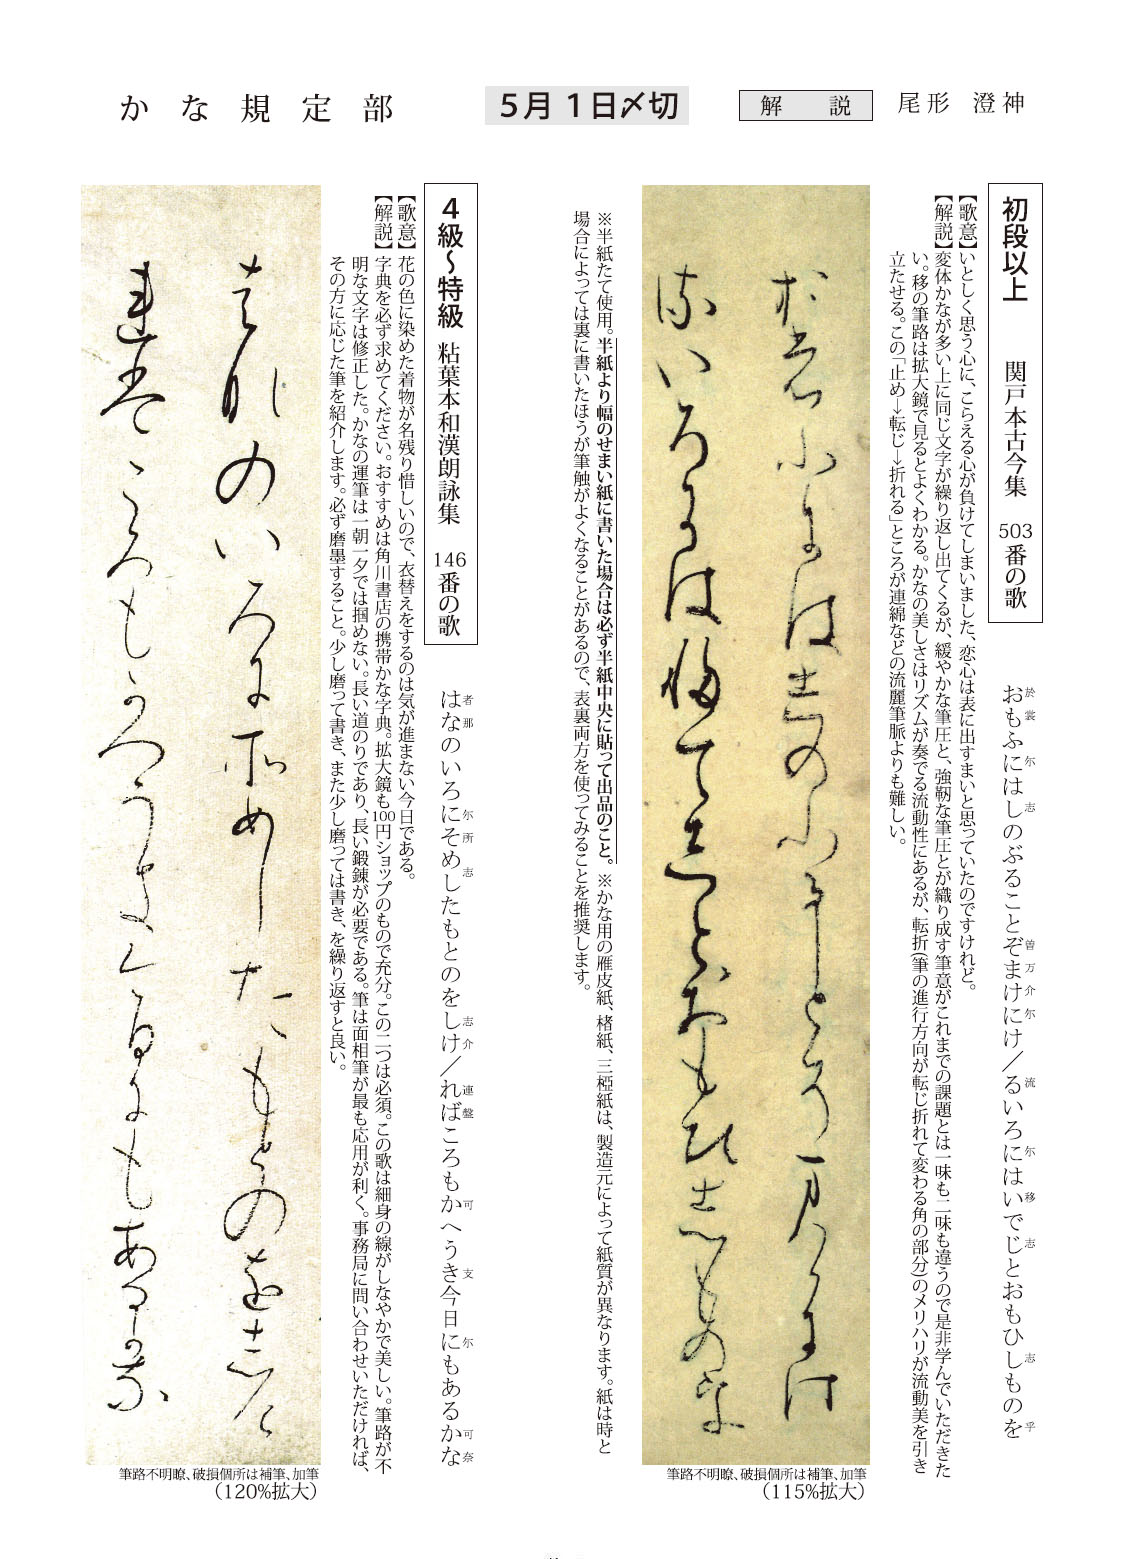 かな規定部
5月1日〆切
解説
尾形 澄神
初段以上 関戸本古今集 503番の歌
おもふにはしのぶることぞまけにけ／るいろにはいでじとおもひしものを
於裳 尓 志 曽万介尓 流 尓 移 志 志 乎
【歌意】いとしく思う心に、こらえる心が負けてしまいました、恋心は表に出すまいと思っていたのですけれど。
【解説】変体かなが多い上に同じ文字が繰り返し出てくるが、緩やかな筆圧と、強靭な筆圧とが織り成す筆意がこれまでの課題とは一味も二味も違うので是非学んでいただきた
い。移の筆路は拡大鏡で見るとよくわかる。かなの美しさはリズムが奏でる流動性にあるが、転折（筆の進行方向が転じ折れて変わる角の部分）のメリハリが流動美を引き
立たせる。この「止め→転じ→折れる」ところが連綿などの流麗筆脈よりも難しい。
筆路不明瞭、破損個所は補筆、加筆
（115%拡大）
※半紙たて使用。半紙より幅のせまい紙に書いた場合は必ず半紙中央に貼って出品のこと。※かな用の雁皮紙、楮紙、三椏紙は、製造元によって紙質が異なります。紙は時と
場合によっては裏に書いたほうが筆触がよくなることがあるので、表裏両方を使ってみることを推奨します。
4級〜特級 粘葉本和漢朗詠集 146番の歌
はなのいろにそめしたもとのをしけ／ればころもかへうき今日にもあるかな
者那 尓所 志 志介 連盤 可 支 尓 可奈
【歌意】花の色に染めた着物が名残り惜しいので、衣替えをするのは気が進まない今日である。
【解説】字典を必ず求めてください。おすすめは角川書店の携帯かな字典。拡大鏡も100円ショップのもので充分。この二つは必須。この歌は細身の線がしなやかで美しい。筆路が不
明な文字は修正した。かなの運筆は一朝一夕では掴めない。長い道のりであり、長い鍛錬が必要である。筆は面相筆が最も応用が利く。事務局に問い合わせいただければ、
その方に応じた筆を紹介します。必ず磨墨すること。少し磨って書き、また少し磨っては書き、を繰り返すと良い。
筆路不明瞭、破損個所は補筆、加筆
（120%拡大）